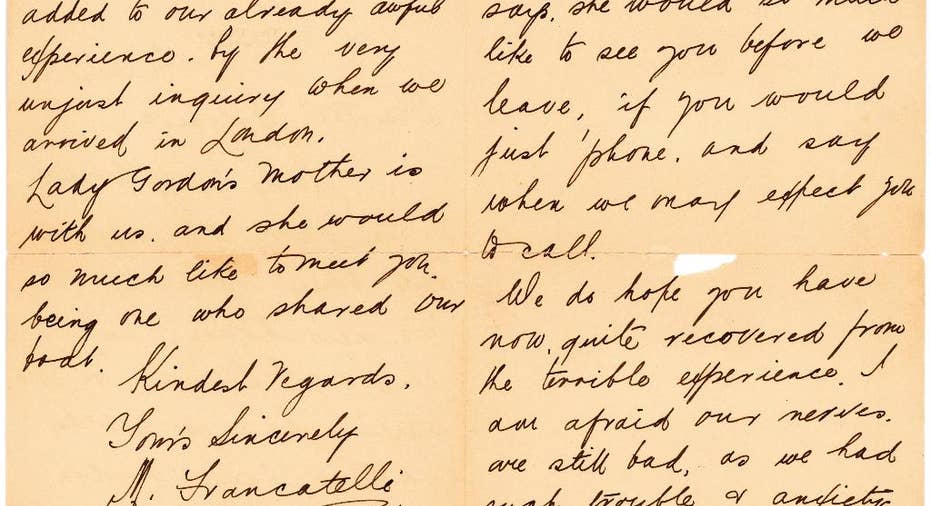 says, she would so much
like to see you before we
leave, if you would
just 'phone, and say
when we may expect you
to call.
We do hope you have
now, quite recovered from
the terrible experience. I
am afraid our nerves.
are still bad, as we had
such trouble & anxiety
added to our already awful
experience. by the very
unjust inquiry when we
arrived in London.
Lady Gordon's Mother is
with us. and she would
so much like to meet you.
being one who shared our
boat.
Kindest Regards.
Your's Sincerely
M. Francatelli